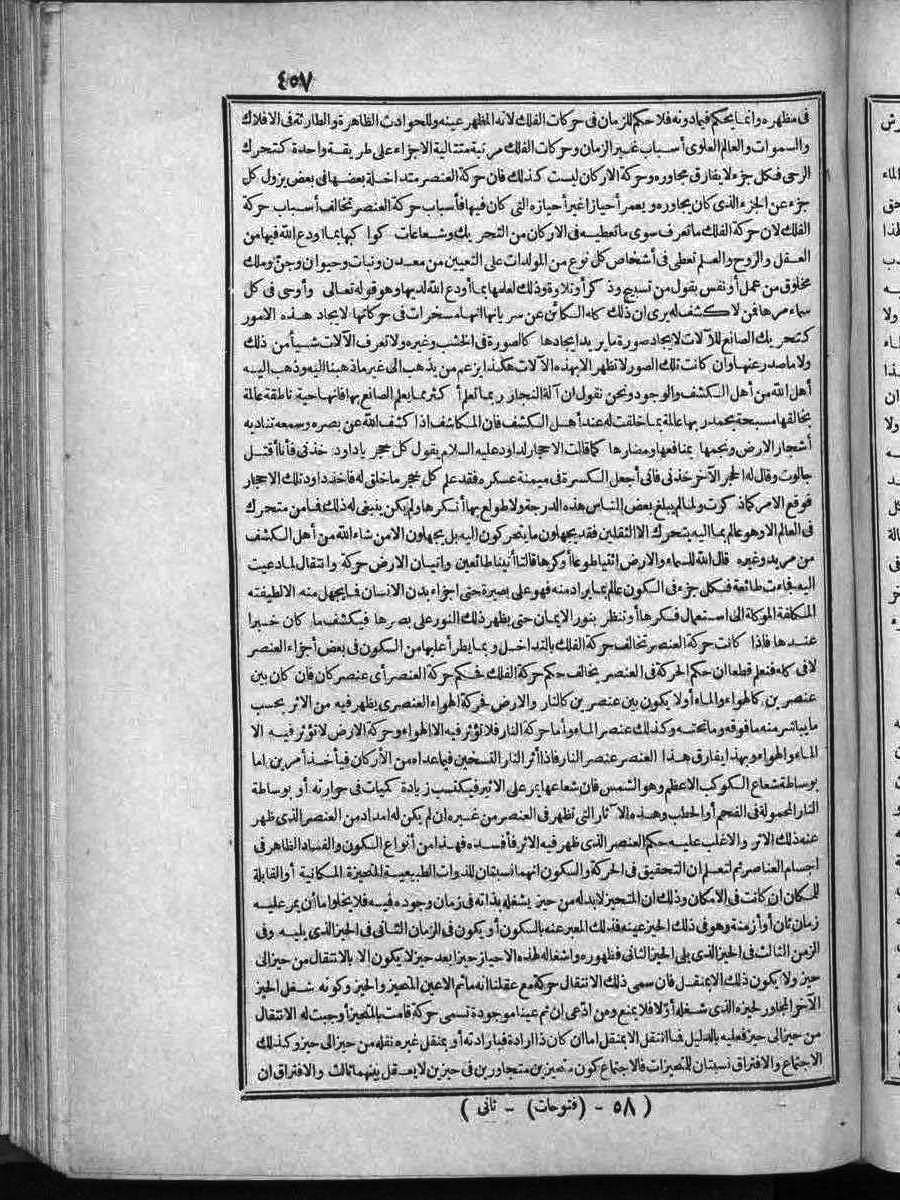 ٤٥٧
فى مظهره وانما يحكم فيمادونه فلا حكم للزمان فى حركات الفلك لانه المظهر عينه وللحوادث الظاهرة والطارئة فى الافلاك
والسموات والعالم العلوى أسباب غير الزمان وحركات الفلك مرتبة متتالية الاجزاء على طريقة واحدة كتحرك
الرحى فكل جزء لا يفارق مجاوره وحركة الاركان ليست كذلك فان حركة العنصر متداخلة بعضها فى بعض يزول كل
جزء عن الجزء الذى كان يجاوره ويعمر أحيازا غير أحيازه التى كان فيها فأسباب حركة العنصر تخالف أسباب حركة
الفلك لان حركة الفلك ما تعرف سوى ما تعطيه فى الاركان من التحريك وشعاعات كواكبها بما اودع الله فيها من
العقل والروح والعلم تعطى فى أشخاص كل نوع من المولدات على التعيين من معدن ونبات وحيوان وجن وملك
مخلوق من عمل أو نفس بقول من تسبيح وذكر أو تلاوة وذلك لعلمها بما أودع الله لديها وهو قوله تعالى وأوحى فى كل
سماء أمرها فمن لا كشف له يرى ان ذلك كله الكائن عن سريانها انها مسخرات فى حركاتها لايجاد هذه الامور
كتحريك الصانع للآلات لايجاد صورة ما يريد ايجادها كالصورة فى الخشب وغيره ولا تعرف الآلات شيأ من ذلك
ولا ما صدر عنها وان كانت تلك الصور لا تظهر الا بهذه الآلات هكذا يزعم من يذهب الى غير ما ذهبنا اليه وذهب اليه
أهل الله من أهل الكشف والوجود ونحن نقول ان آلة النجار ربما تعلم أكثر مما يعلم الصانع بها فانها حية ناطقة عالمة
بخالقها مسبحة بحمد ربها عالمة بما خلقت له عند أهل الكشف فان المكاشف اذا كشف الله عن بصره وسمعه تناديه
أشجار الارض ونجمها بمنافعها ومضارها كما قالت الاحجار لداود عليه السلام يقول كل حجر ياداود خذنى فأنا أقتل
جالوت وقال له الحجر الآخر خذنى فانى أجعل الكسرة فى ميمنة عسكره فقد علم كل حجر ما خلق له فأخذ داود تلك الاحجار
فوقع الامر كما ذكرت ولما لم يبلغ بعض الناس هذه الدرجة ولا طولع بها أنكرها ولم يكن ينبغى له ذلك فما من متحرك
فى العالم الا وهو عالم بما اليه يتحرك الا الثقلين فقد يجهلون ما يتحركون اليه بل يجهلون الا من شاء الله من أهل الكشف
من مريد وغيره قال الله للسماء والارض ائتيا طوعا أو كرها قالتا أتينا طائعين واتيان الارض حركة وانتقال لما دعيت
اليه فجاءت طائعة فكل جزء فى السكون عالم بما يراد منه فهو على بصيرة حتى اجزاء بدن الانسان فما يجهل منه الا لطيفته
المكلفة الموكلة الى استعمال فكرها أو تنظر بنور الايمان حتى يظهر ذلك النور على بصرها فيكشف ما كان خبرا
عندها فاذا كانت حركة العنصر تخالف حركة الفلك بالتداخل وبما يطرأ عليها من السكون فى بعض أجزاء العنصر
لا فى كله فنعلم قطعا ان حكم الحركة فى العنصر يخالف حكم حركة الفلك فحكم حركة العنصر أى عنصر كان فان كان بين
عنصرين كالهواء والماء أولا يكون بين عنصرين كالنار والارض فحركة الهواء العنصرى يظهر فيه من الاثر بحسب
ما يباشر منه ما فوقه وما تحته وكذلك عنصر الماء وأما حركة النار فلا تؤثر فيه الا الهواء وحركة الارض لا تؤثر فيه الا
الماء والهواء وبهذا يفارق هذا العنصر عنصر النار فاذا أثر النار التسخين فيما عداه من الأركان فبأحد أمرين اما
بوساطة شعاع الكوكب الاعظم وهو الشمس فان شعاعها يمر على الاثير فيكتسب زيادة كميات فى حرارته أو بوساطة
النار المحمولة فى الفحم أو الحطب وهذه الآثار التى تظهر فى العنصر من غيره ان لم يكن له امداد من العنصر الذى ظهر
عنه ذلك الاثر والا غلب عليه حكم العنصر الذى ظهر فيه الاثر فأفسده فهذا من أنواع السكون والفساد الظاهر فى
اجسام العناصر ثم لتعلم ان التحقيق فى الحركة والسكون انهما نسبتان للذوات الطبيعية المتحيزة المكانية أو القابلة
للمكان ان كانت فى الامكان وذلك ان المتحيز لابد له من حيز يشغله بذاته فى زمان وجوده فيه فلا يخلو اما أن يمر عليه
زمان ثان أو أزمنة وهو فى ذلك الحيز عينه فذلك المعبر عنه بالسكون أو يكون فى الزمان الثانى فى الحيز الذى يليه وفى
الزمن الثالث فى الحيز الذى يلى الحيز الثانى فظهوره واشغاله لهذه الاحياز حيزا بعد حيز لا يكون الا بالانتقال من حيز الى
حيز ولا يكون ذلك الا بمنقل فان سمى ذلك الانتقال حركة مع عقلنا انه ما ثم الا عين المتحيز والحيز وكونه شغل الحيز
الآخر المجاور لحيزه الذى شغله أولا فلا يمنع ومن ادعى ان ثم عينا موجودة تسمى حركة قامت بالمتحيز أوجبت له الانتقال
من حيز الى حيز فعليه بالدليل فما انتقل الا بمنقل اما ان كان ذا ارادة فبارادته أو بمنقل غيره نقله من حيز الى حيز وكذلك
الاجتماع والافتراق نسبتان للمتحيزات فالاجتماع كون متحيزين متجاورين فى حيزين لا يعقل بينهما ثالث والافتراق ان
( ٥٨ - (فتوحات) - ثانى )